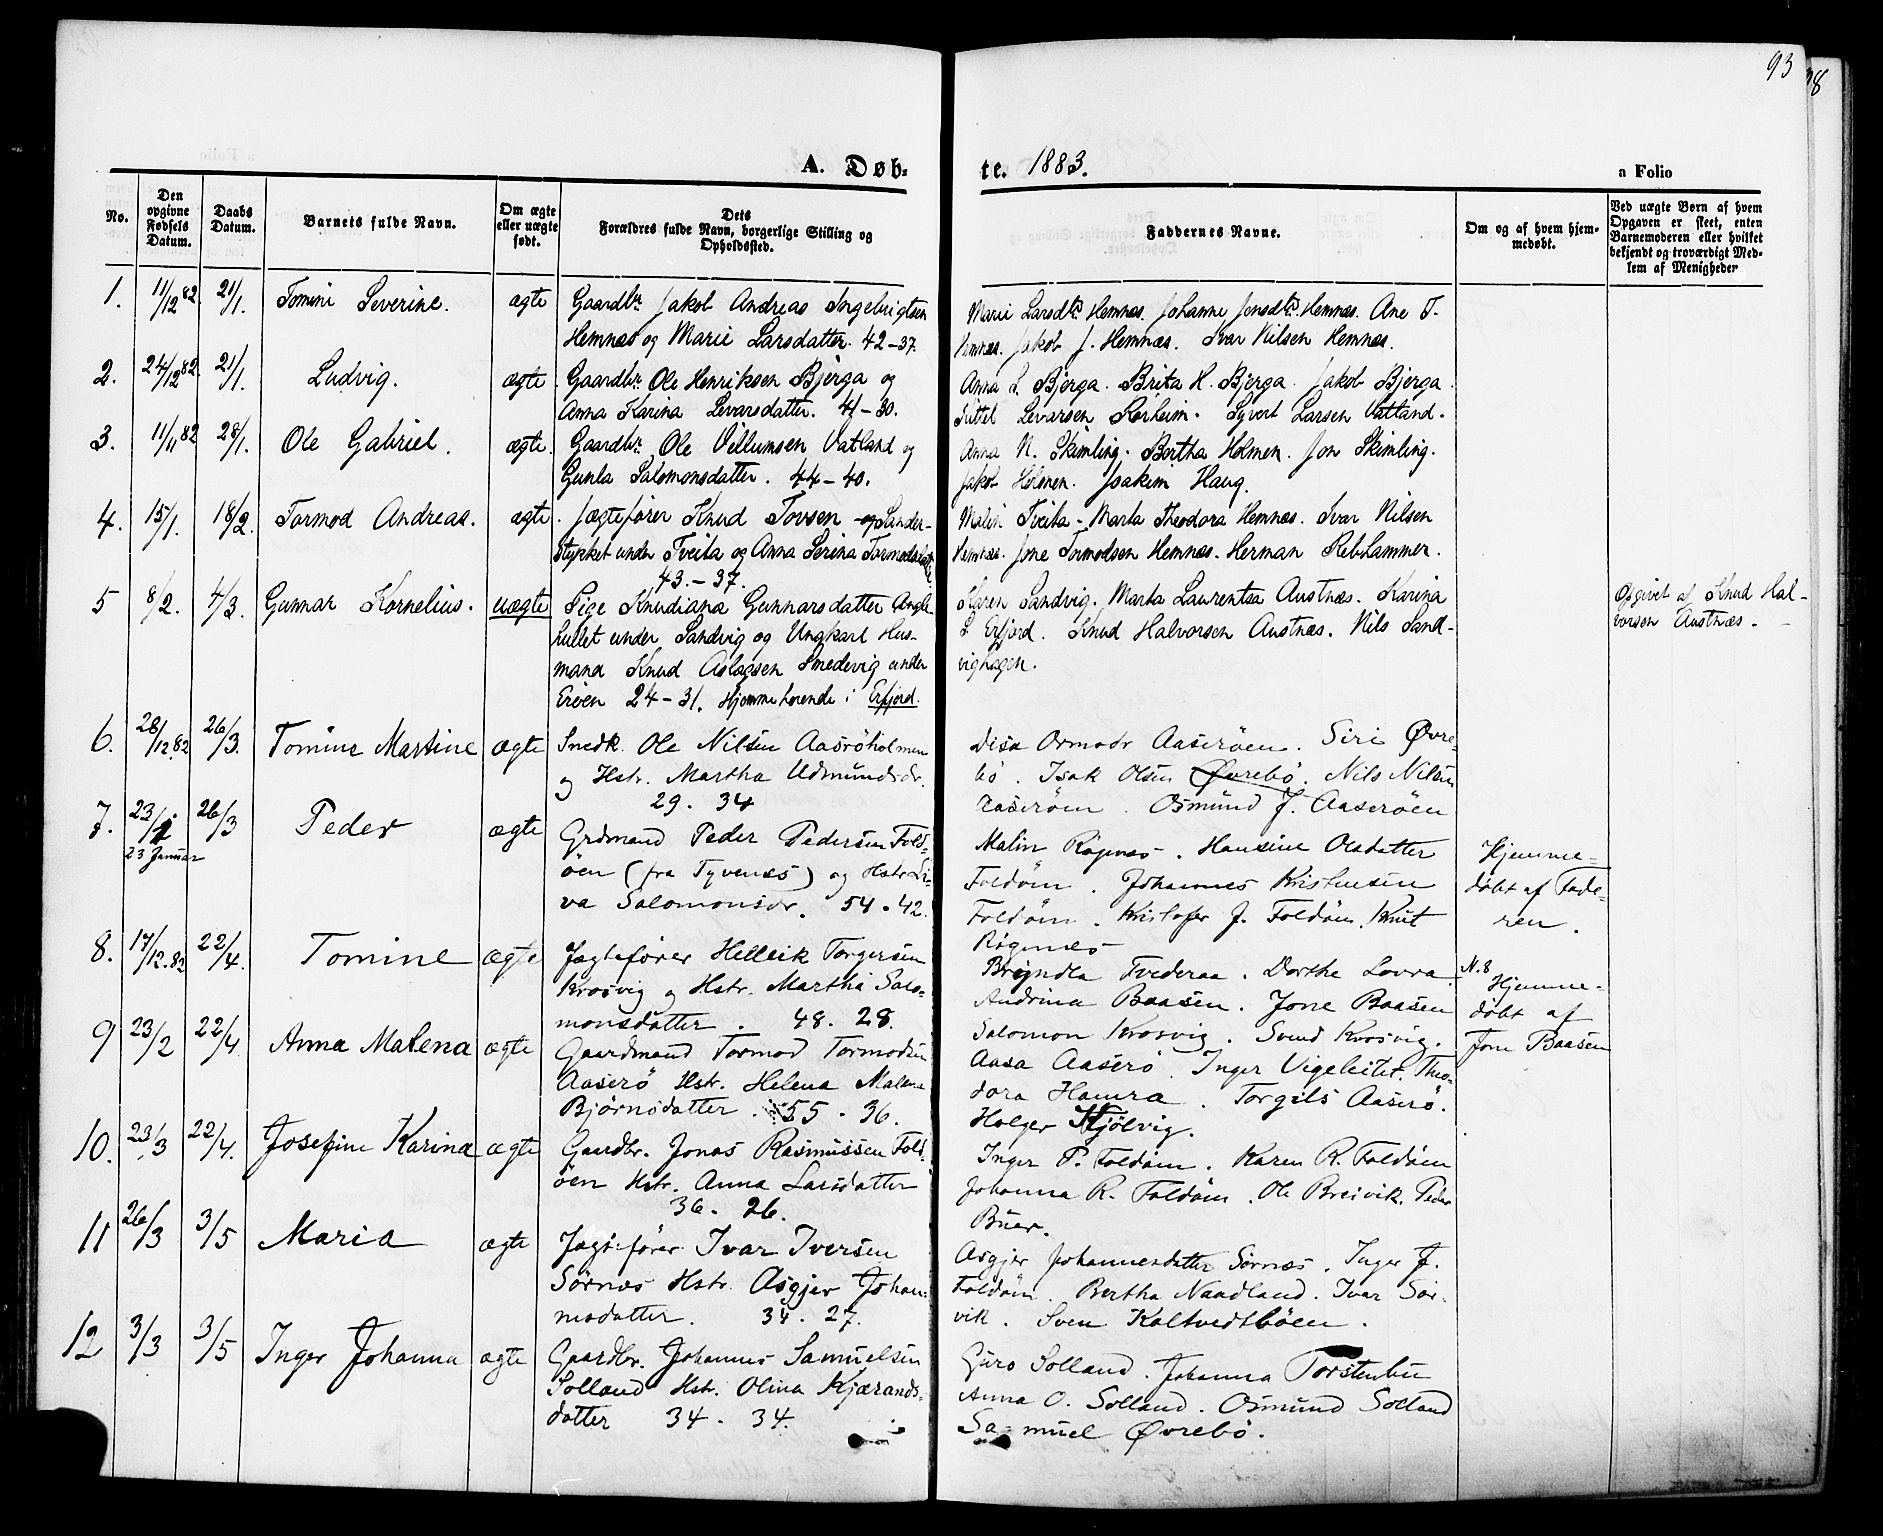 93
98
A. Døb-
te. 1883.
a Folio
No.
Den opgivne Fødsels Datum.
Daabs Datum.
Barnets fulde Navn.
Om ægte eller uægte født.
Dets Forældres fulde Navn, borgerlige Stilling og Opholdssted.
Faddernes Navne.
Om og af hvem hjemmedøbt.
Ved uægte Børn af hvem Opgaven er skeet, enten Barnemoderen eller hvilket bekjendt og troværdigt Medlem af Menigheder
1. 11/12 82. 21/1. Tomine Severine. ægte Gaardbr. Jakob Andreas Ingebrigtsen
Hemnæs og Marie Larsdatter. 42-37.
Marie Larsdtr. Hemnæs. Johanne Jonsdtr. Hemnæs. Ane T.
Hemnæs. Jakob J. Hemnæs. Ivar Nilsen Hemnæs.
2. 24/12 82. 21/1. Ludvig. ægte. Gaardbr. Ole Henriksen Bjerga og
Anna Karina Levarsdatter. 41-30.
Anna L. Bjerga. Brita H. Bjerga. Jakob Bjerga.
Tittel Levarsen Sørheim. Syvert Larsen Vatland.
3. 11/11 82 28/1. Ole Gabriel. ægte. Gaardbr. Ole Villumsen Vatland og
Gunla Salomonsdatter. 44-40.
Anna N. Skimling. Bertha Holmen. Jon Skimling.
Jakob Holmen. Joakim Haug.
4. 15/1. 18/2. Tormod Andreas. ægte. Jægtefører Knud Tovsen og Sander-
stykket under Tveita og Anna Serina Tormodsdatter
43.-37.
Malin Tveita. Marta Theodora Hemnæs. Ivar Nilsen
Hemnæs. Jone Tormodsen Hemnæs. Herman Reb Lammen.
5 8/2. 4/3. Gunnar Kornelius. uægte Pige Knudiana Gunnarsdatter Angle-
hullet under Sandvig og Ungkarl Hus-
mand Knud Aslagsen Smedevig under
Erøen 24-31. Hjemmehørende i Erfjord.
Karen Sandvig. Marta Laurentsa Austnæs. Karina
L. Erfjord. Knud Halvorsen Austnæs. Nils Sand-
vighagen.
Opgivet af Knud Hal-
vorsen Austnæs. -
6. 28/12 82 26/3. Tomine Martine ægte Snedk. Ole Nilsen Aasrøholmen
og Hstr. Martha Udmundsdr.
29. 34
Disa Ormsdr Aaserøen. Siri Øvre-
bø. Isak Olsen Øvrebø. Nils Nilsen
Aaserøen. Osmund J. Aaserøen
7. 23/1 26/3 Peder ægte
23 Januar
Grdmand Peder Pedersen Fold-
øen (fra Tyvenæs) og Hstr Si-
va Salomonsdr. 54. 42.
Malin Røgenæs. Hansine Olsdatter
Foldøen. Johannes Kristensen
Foldøen. Kristofer J. Foldøen. Knut
Røgenæs
Hjemme-
døbt af Fade-
ren.
8. 17/12.82 22/4. Tomine ægte Jægtefører Helleik Torgersen
Krosvig og Hstr. Martha Salo-
monsdatter. 48. 28.
Bryndla Fvederaa. Dorthe Lovra.
Andrina Baasen. Jone Baasen
Salomon Krosvig. Svend Krosvig.
N.8 Hjemme-
døbt af
Jone Baasen
9 23/2 22/4 Anna Malena ægte Gaardmand Tormod Tormodsen
Aaserø Hstr. Helena Malena
Bjørnsdatter. 55. 36.
Aasa Aaserø. Inger Vigeleitet. Theo-
dora Hamra. Torgils Aaserø.
Holger Kjølvig.
10. 23/3 22/4. Josefine Karina ægte Gaardbr. Jonas Rasmussen Fold-
øen Hstr. Anna Larsdatter
36. 26.
Inger P. Foldøen. Karen R. Foldøen
Johanna R. Foldøen. Ole Breivik. Peder
Buer.
11 26/3 3/5 Maria ægte Jægtefører Ivar Iversen
Sørnæs Hstr. Asgjer Johan-
nesdatter. 34. 27.
Asgjer Johannesdatter Sørnæs. Inger J.
Foldøen. Bertha Naadland. Ivar Sør-
vik. Sven Kaltvedtbøen.
12 3/3 3/5 Inger Johanna ægte Gaardbr. Johannes Samuelsen
Solland Hstr. Olina Kjærands-
datter 34. 34.
Guro Solland. Johanna Torstenbu
Anna O. Solland. Osmund Solland
Samuel Øvrebø.